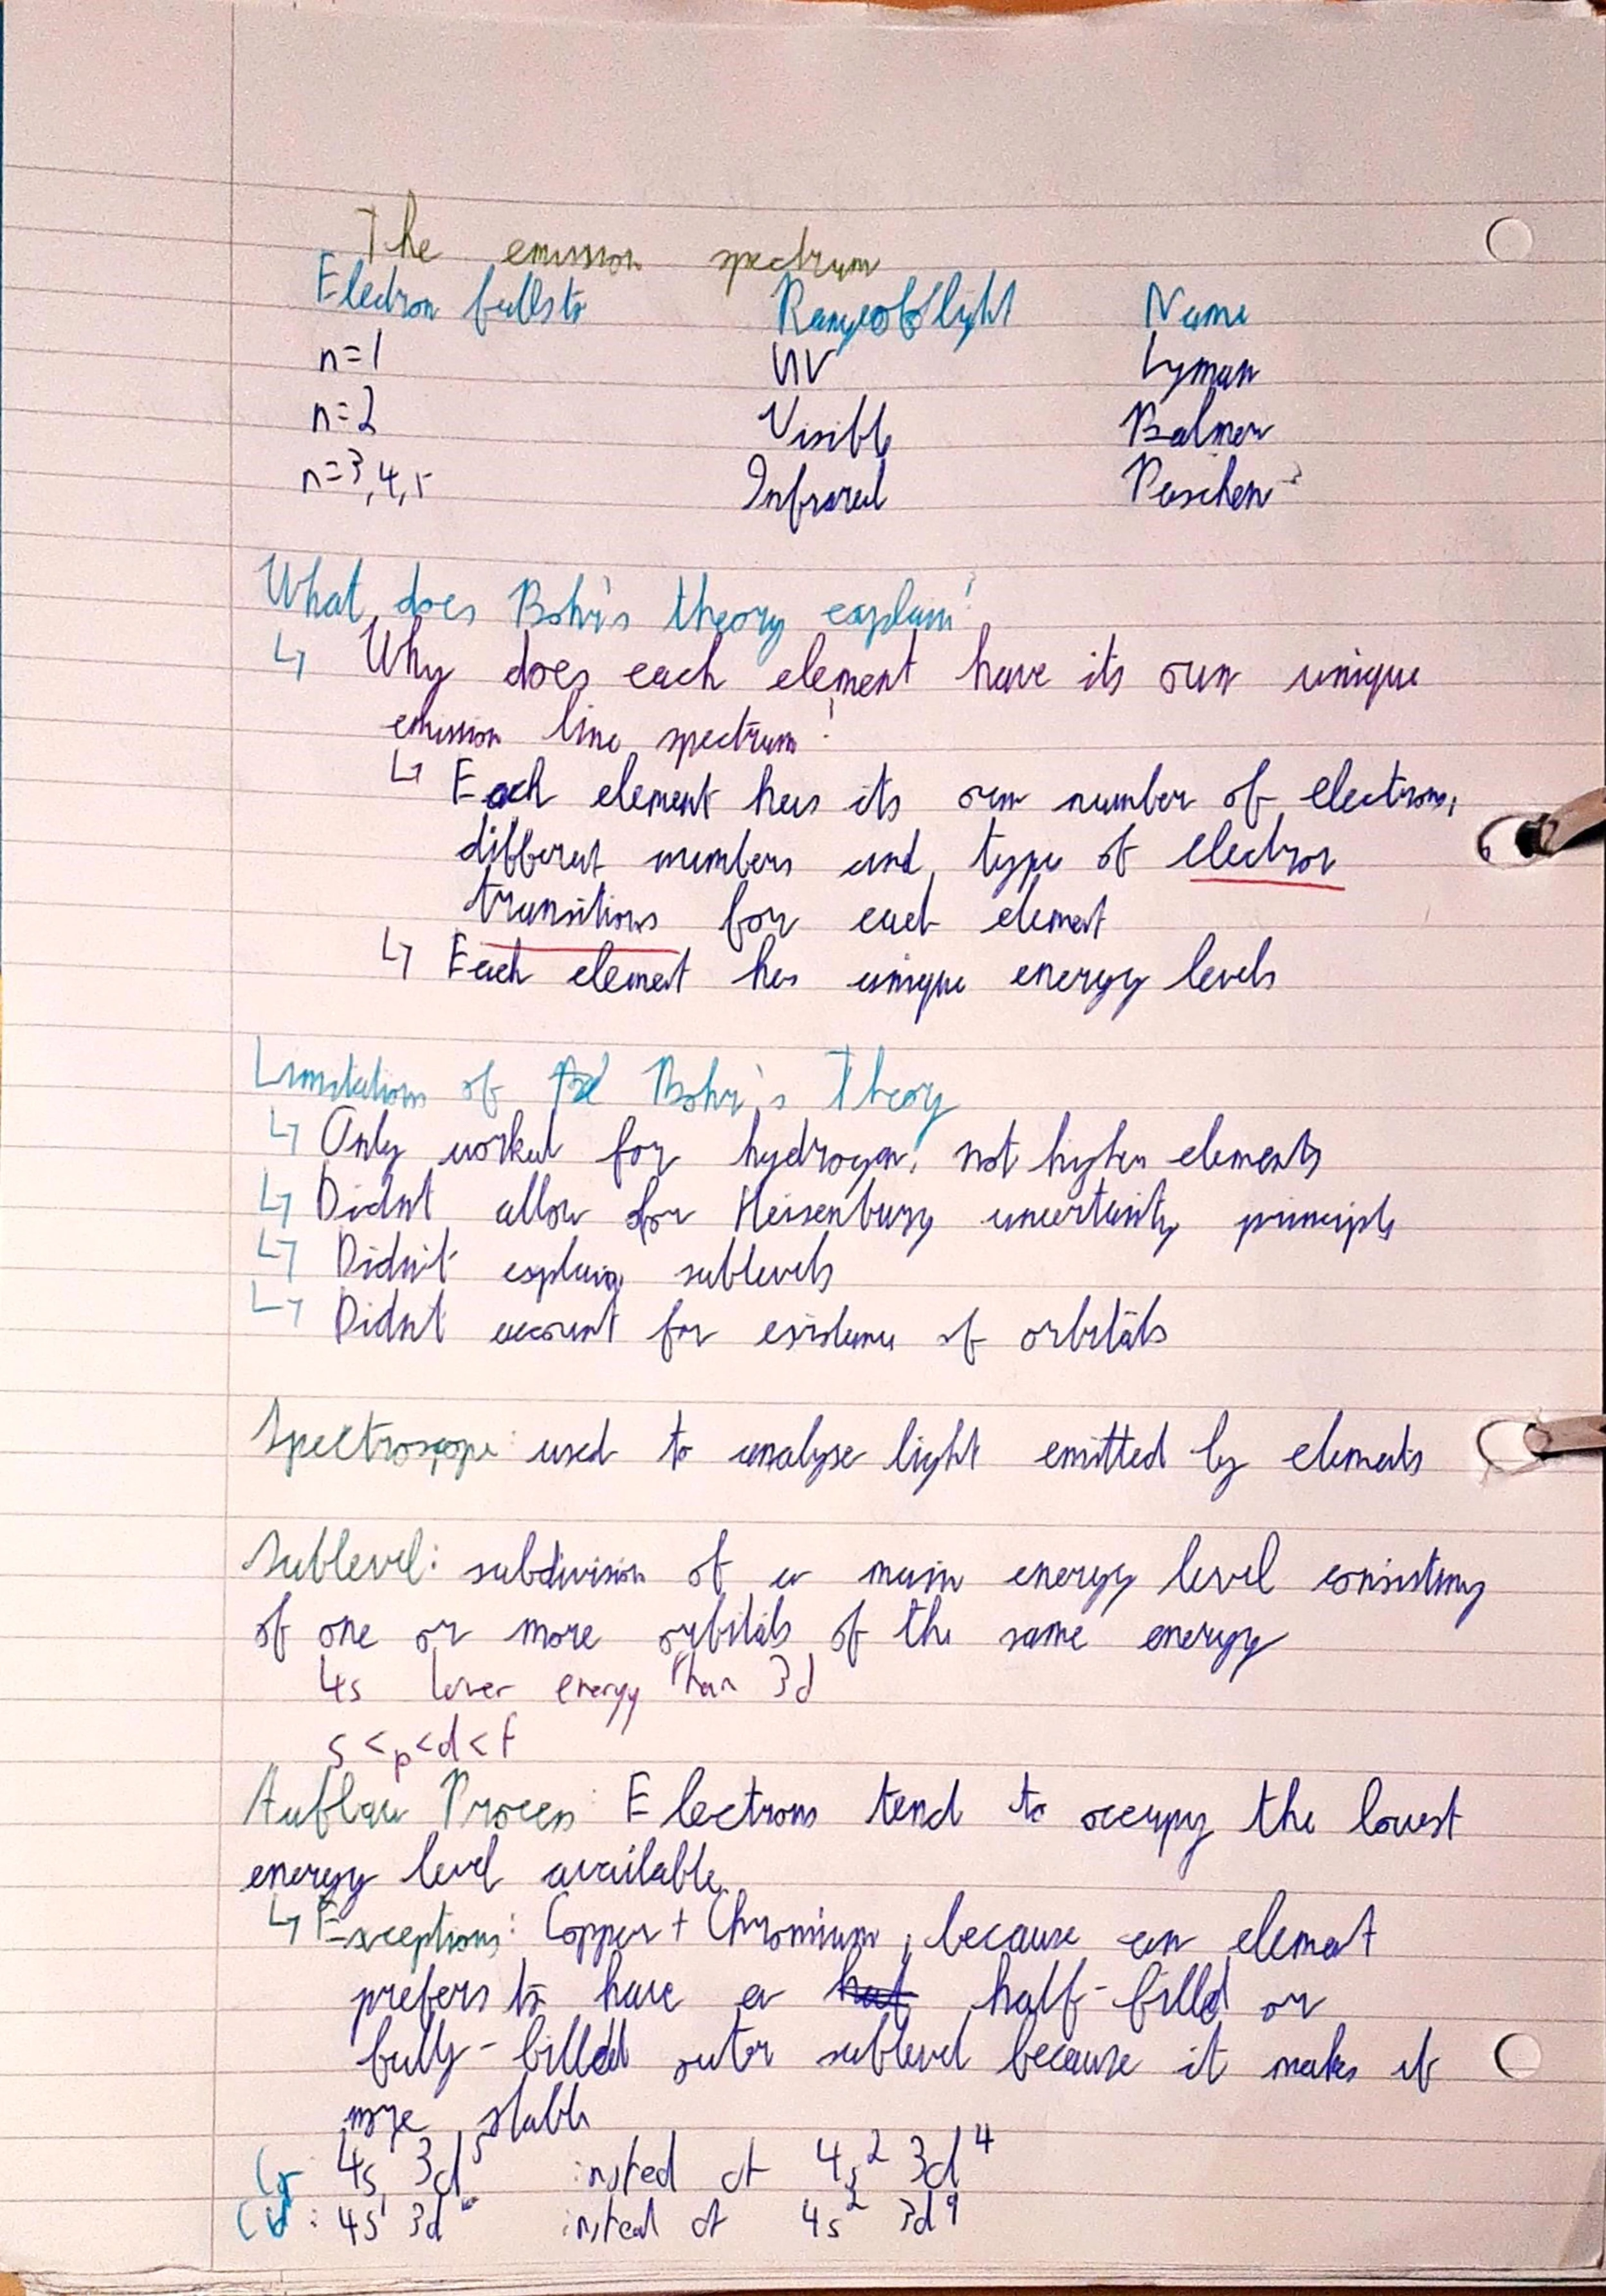 The emission spectrum
Electron falls to Range of light Name
n=1 UV Lyman
n=2 Visible Balmer
n=3,4,5 Infrared Paschen
What does Bohr's theory explain?
↳ Why does each element have its own unique
emission line spectrum?
↳ Each element has its own number of electrons,
different numbers and type of electron
transitions for each element
↳ Each element has unique energy levels
Limitations of Bohr's Theory
↳ Only worked for hydrogen, not higher elements
↳ Didn't allow for Heisenburg uncertainty principle
↳ Didn't explain sublevels
↳ Didn't account for existence of orbitals
Spectroscope: used to analyse light emitted by elements
Sublevel: subdivision of a main energy level consisting
of one or more orbitals of the same energy
4s lower energy than 3d
s < p < d < f
Aufbau Process: Electrons tend to occupy the lowest
energy level available
↳ Exceptions: Copper + Chromium, because an element
prefers to have a half-filled or
fully-filled outer sublevel because it makes it
more stable
Cr: 4s 3d⁵ insted of 4s² 3d⁴
Cu: 4s¹ 3d¹⁰ instead of 4s² 3d⁹